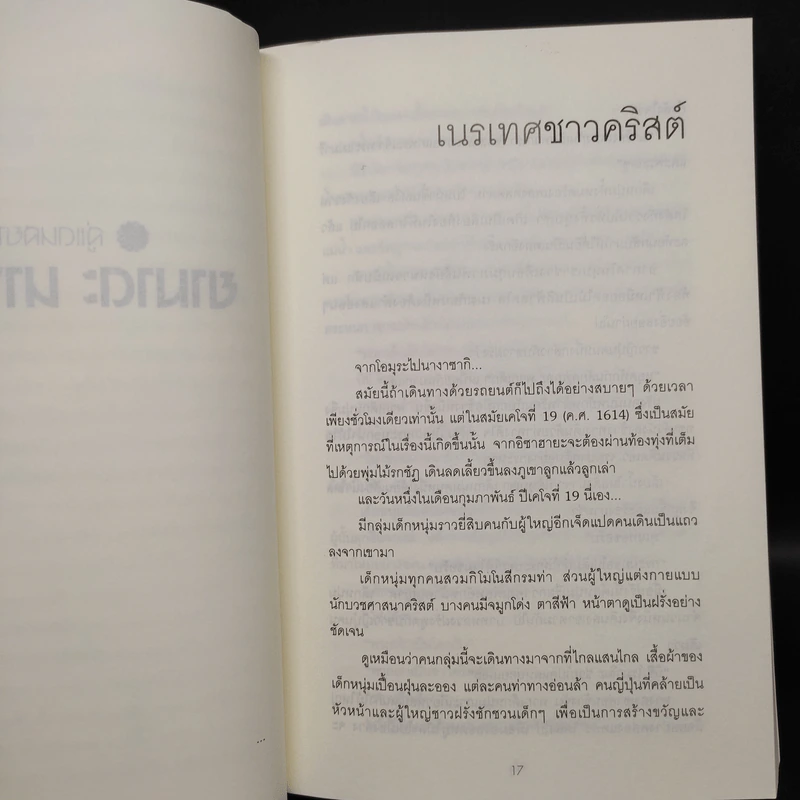 เนรเทศชาวคริสต์
จากโอมุระไปนางาซากิ...
สมัยนี้ถ้าเดินทางด้วยรถยนต์ก็ไปถึงได้อย่างสบายๆ ด้วยเวลา
เพียงชั่วโมงเดียวเท่านั้น แต่ในสมัยเคโจที่ 19 (ค.ศ. 1614) ซึ่งเป็นสมัย
ที่เหตุการณ์ในเรื่องนี้เกิดขึ้นนั้น จากอิซาฮายะจะต้องผ่านท้องทุ่งที่เต็ม
ไปด้วยพุ่มไม้รกชัฏ เดินลดเลี้ยวขึ้นลงภูเขาลูกแล้วลูกเล่า
และวันหนึ่งในเดือนกุมภาพันธ์ ปีเคโจที่ 19 นี่เอง...
มีกลุ่มเด็กหนุ่มราวยี่สิบคนกับผู้ใหญ่อีกเจ็ดแปดคนเดินเป็นแถว
ลงจากเขามา
เด็กหนุ่มทุกคนสวมกิโมโนสีกรมท่า ส่วนผู้ใหญ่แต่งกายแบบ
นักบวชศาสนาคริสต์ บางคนมีจมูกโด่ง ตาสีฟ้า หน้าตาดูเป็นฝรั่งอย่าง
ชัดเจน
ดูเหมือนว่าคนกลุ่มนี้จะเดินทางมาจากที่ไกลแสนไกล เสื้อผ้าของ
เด็กหนุ่มเปื้อนฝุ่นละออง แต่ละคนท่าทางอ่อนล้า คนญี่ปุ่นที่คล้ายเป็น
หัวหน้าและผู้ใหญ่ชาวฝรั่งชักชวนเด็กๆ เพื่อเป็นการสร้างขวัญและ
17